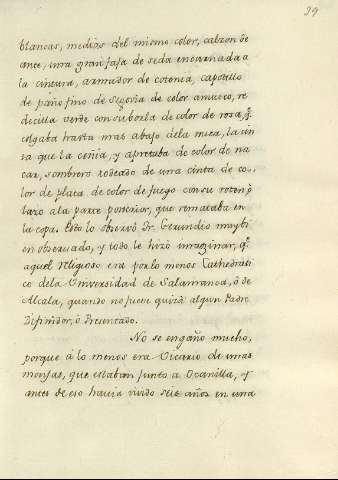 29
blancas, medias del mismo color, calzon de
ante, una gran faja de seda encarnada a
la cintura, armador de cotonia, capotillo
de paño fino de Segovia de color amusco, re
decilla verde con su borla de color de rosa, q.
colgaba hasta mas abajo dela nuca, la cin
ta que la ceñia, y apretaba de color de na
car, sombrero rodeado de una cinta de co,
lor de plata de color de fuego con su roton p.
lazo ala parte posterior, que remataba en
la copa. Esto lo observó Fr. Gerundio muy bi
en obsevado, y todo le hizo imaginar, q.
aquel religioso era por lo menos Cathedrati
co dela Universidad de Salamanca, ó de
Alcala, quando no fuese quizá algun Padre
Difinidor, ò Presentado.
No se engaño mucho,
porque à lo menos era Vicario de unas
monjas, que estaban junto a Ocanilla, y
antes de eso havia vivido seis años en una